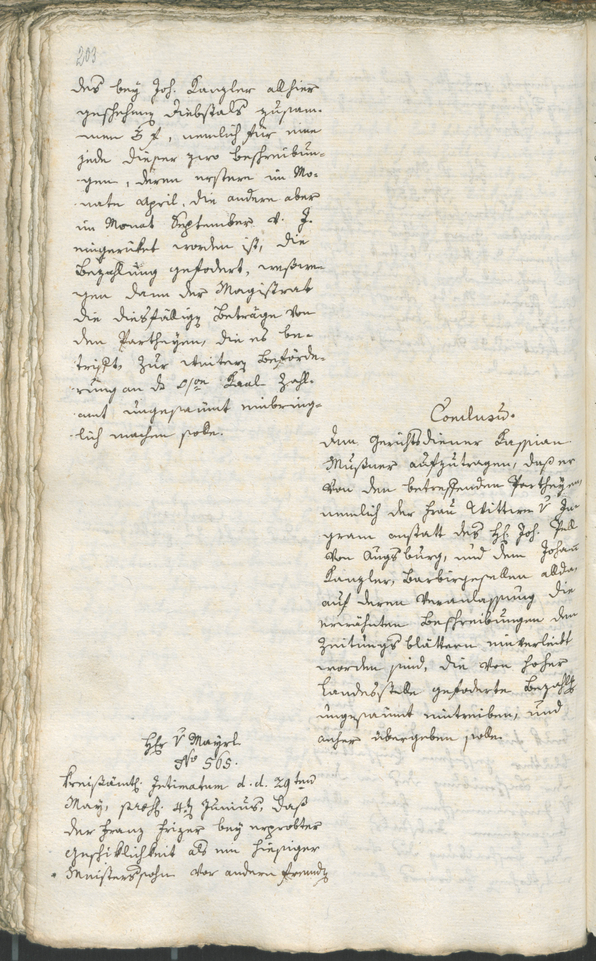 203
des bey Joh. Kanzler allhier
geschehenen Diebstals zusam-
men 3 f, nemlich für eine
jede dieser zwo Beschreibun-
gen, deren erstere im Mo-
nate April, die andere aber
im Monat September v. J.
eingerüket worden ist, die
Bezahlung gefodert, weßwe-
gen dann der Magistrat
die diesfälligen Beträge von
den Partheyen, die es be-
trift, zur weitern Beförde-
rung an das Kaal Zahl-
amt ungesaumt einbring-
lich machen solle.
Conclusum.
Dem Gerichtsdiener Kassian
Mußner aufzutragen, daß er
von den betreffenden Partheyen,
nemlich der Frau Wittwe v In-
gram anstatt des H. Joh.
von Augsburg, und dem Johann
Kanzler, Barbirgesellen allda,
auf deren Veranlassung die
erwähnten Beschreibungen den
Zeitungsblättern einverleibt
worden sind, die von hoher
Landesstelle gefoderte Bezahlg
ungesaumt eintreiben, und
anher übergeben solle.
Hr v Mayrl
No 565.
Kreisämtl. Intimatum d. d. 29ten
May, 4ten Junius, daß
der Franz Hizer bey erprobter
Geschiklichkeit als ein hiesiger
Meisterssohn vor andern fremden